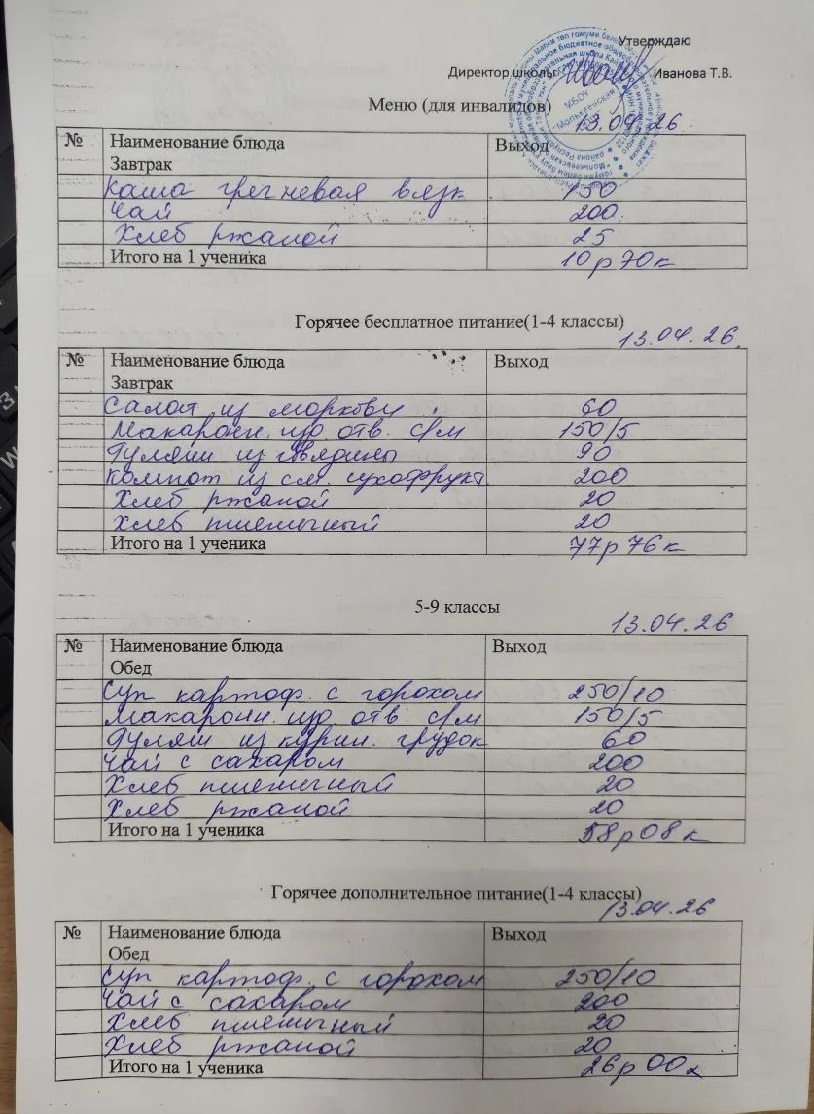 Утверждаю
Директор школы Иванова Т.В.
Меню (для инвалидов)
13.04.26
№ Наименование блюда Выход
Завтрак
Каша гречневая вязк 150
Чай 200
Хлеб ржаной 25
Итого на 1 ученика 10р70к
Горячее бесплатное питание(1-4 классы)
13.04.26.
№ Наименование блюда Выход
Завтрак
Салат из моркови 60
Макароны. изд. отв. с/м 150/5
Гуляш из говядины 90
Компот из см. сухофрукт 200
Хлеб ржаной 20
Хлеб пшеничный 20
Итого на 1 ученика 77р76к
5-9 классы
13.04.26
№ Наименование блюда Выход
Обед
Суп картоф. с горохом 250/10
Макаронн. изд. отв с/м 150/5
Гуляш из курин. грудок 60
Чай с сахаром 200
Хлеб пшеничный 20
Хлеб ржаной 20
Итого на 1 ученика 58р08к
Горячее дополнительное питание(1-4 классы)
13.04.26
№ Наименование блюда Выход
Обед
Суп картоф. с горохом 250/10
Чай с сахаром 200
Хлеб пшеничный 20
Хлеб ржаной 20
Итого на 1 ученика 26р00к